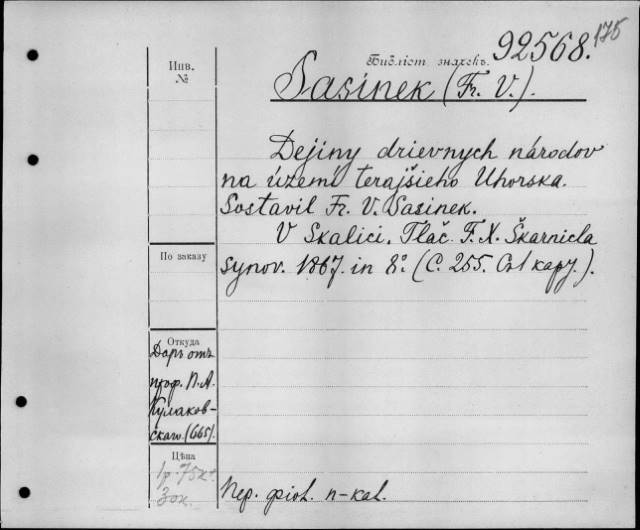 175
Библіот. значекъ. 92568.
Инв.
№
Sasinek (Fr. V.).
Dejiny drievnych národov
na území terajšieho Uhorska.
Sostavil Fr. V. Sasinek.
V Skalici. Tlač. F. X. Škarnicla
synov. 1867. in 8.° (C. 255.
По заказу
Откуда
Даръ отъ
проф. П. А.
Кулаков-
скаго. (665).
Цѣна
1р. 75к.
30к.
Пер. фіол. п-кал.